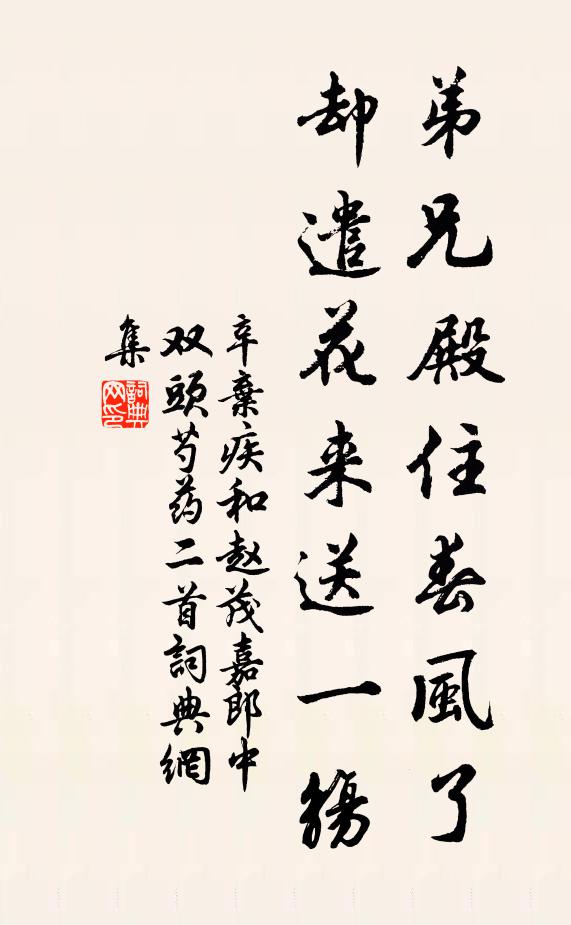 弟兄殿住春風了
却遣花来送一觴
辛棄疾和赵茂嘉郎中
双頭芍药二首詞典網
集
詞典
网印